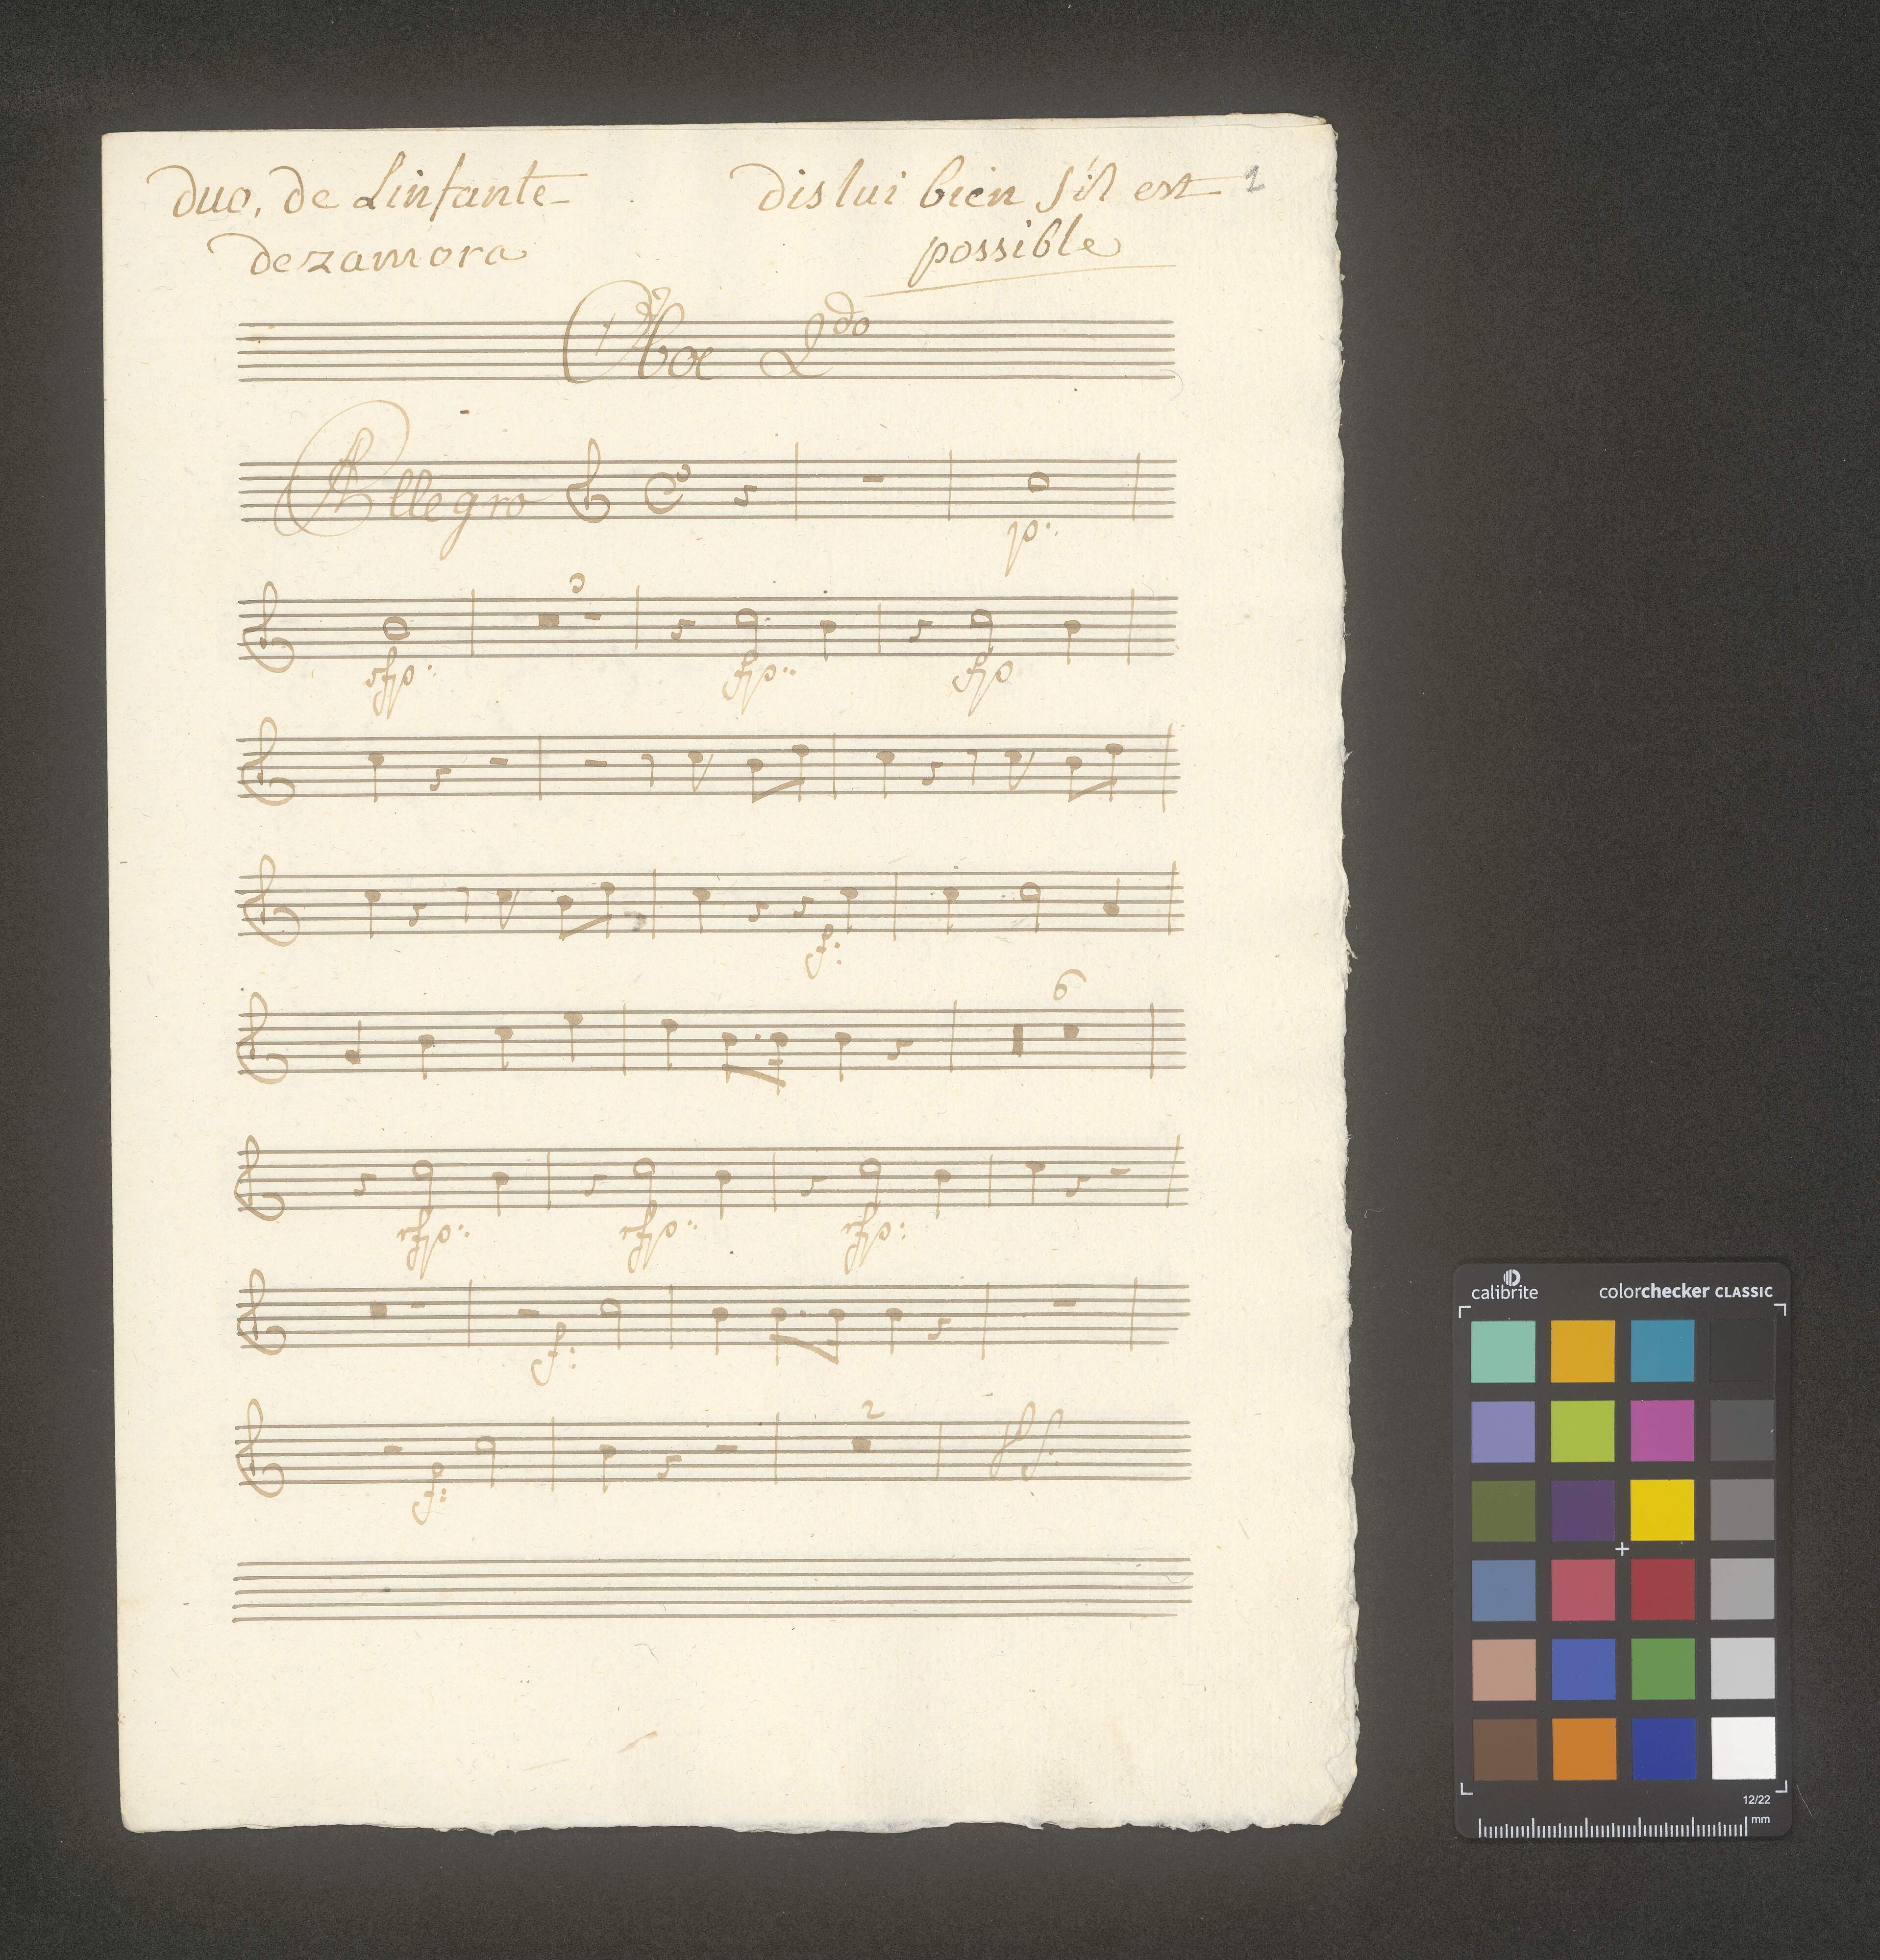 duo, de Linfante dis lui bien s'il est 1
de zamora possible
Oboe 2do
Allegro
p:
3
rfp: fp: fp
f:
6
rfp: rfp: rfp:
f:
2
f:
calibrite colorchecker CLASSIC
12/22
mm